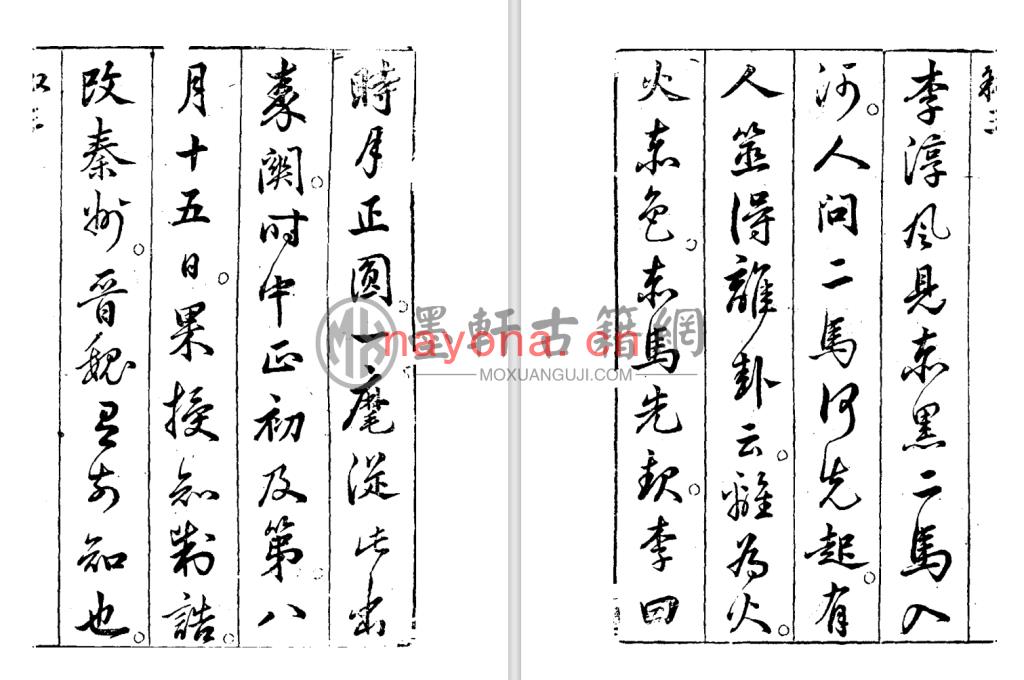 李淳风見赤黑二馬入
河。人问二馬何先起。有
人筮得離卦云。離為火
火赤色。赤馬先。李曰
時月正圆。一麾從此出
秦關。时中正初及第。八
月十五日。果授知制誥。
改秦州。晉魏前知也。
墨軒古籍網
nayona.cn
MOXUANGUJI.COM